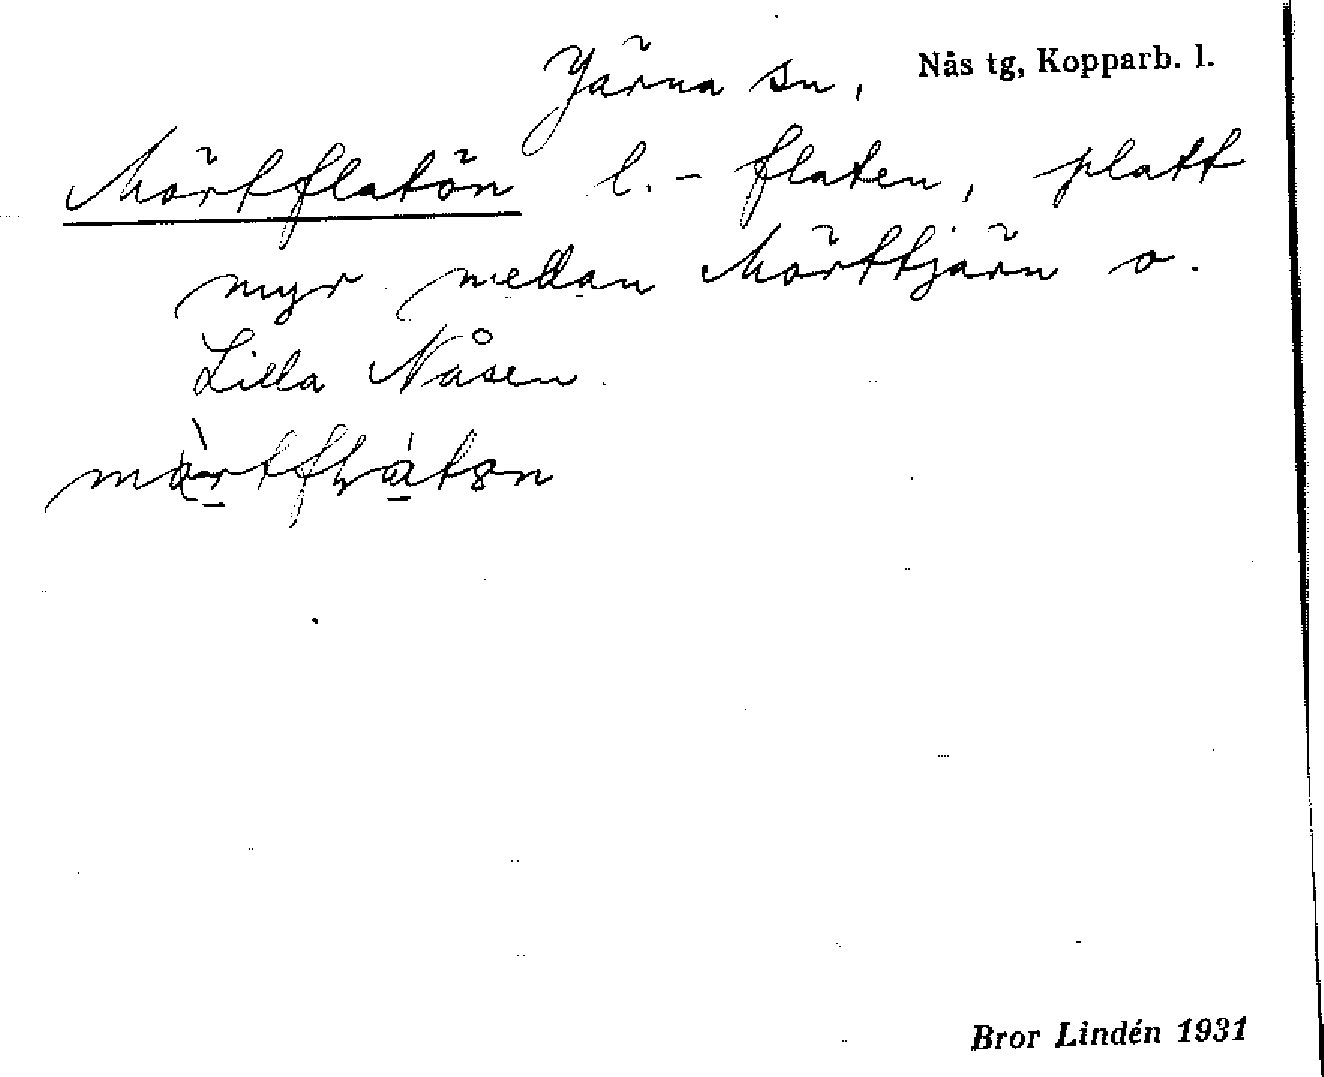 Järna sn, Nås tg, Kopparb. l.
Mörtflatön l. - flaten, platt
myr mellan Mörttjärn o.
Lilla Nåsen
Bror Lindén 1931